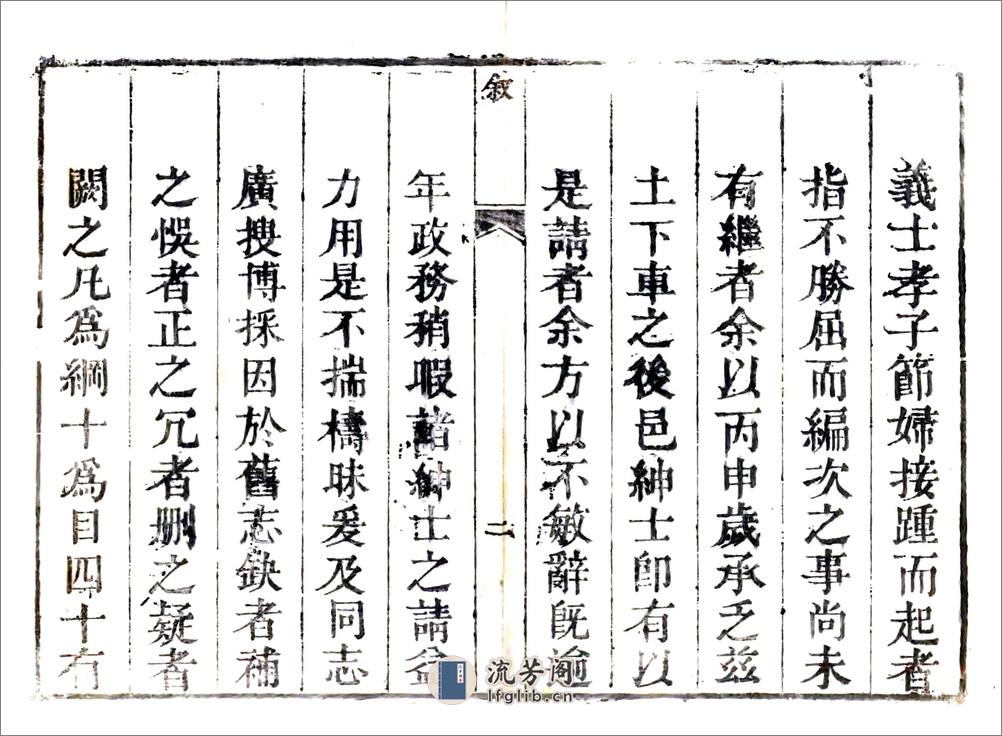 義士孝子節婦接踵而起者
指不勝屈而編次之事尚未
有繼者余以丙申歲承乏茲
土下車之後邑紳士卽有以
是請者余方以不敏辭旣逾
叙
二
年政務稍暇諸紳士之請益
力用是不揣檮昧爰及同志
廣搜博採因於舊志缺者補
之悞者正之冗者刪之疑者
闕之凡爲綱十爲目四十有
流芳阁
lfglib.cn